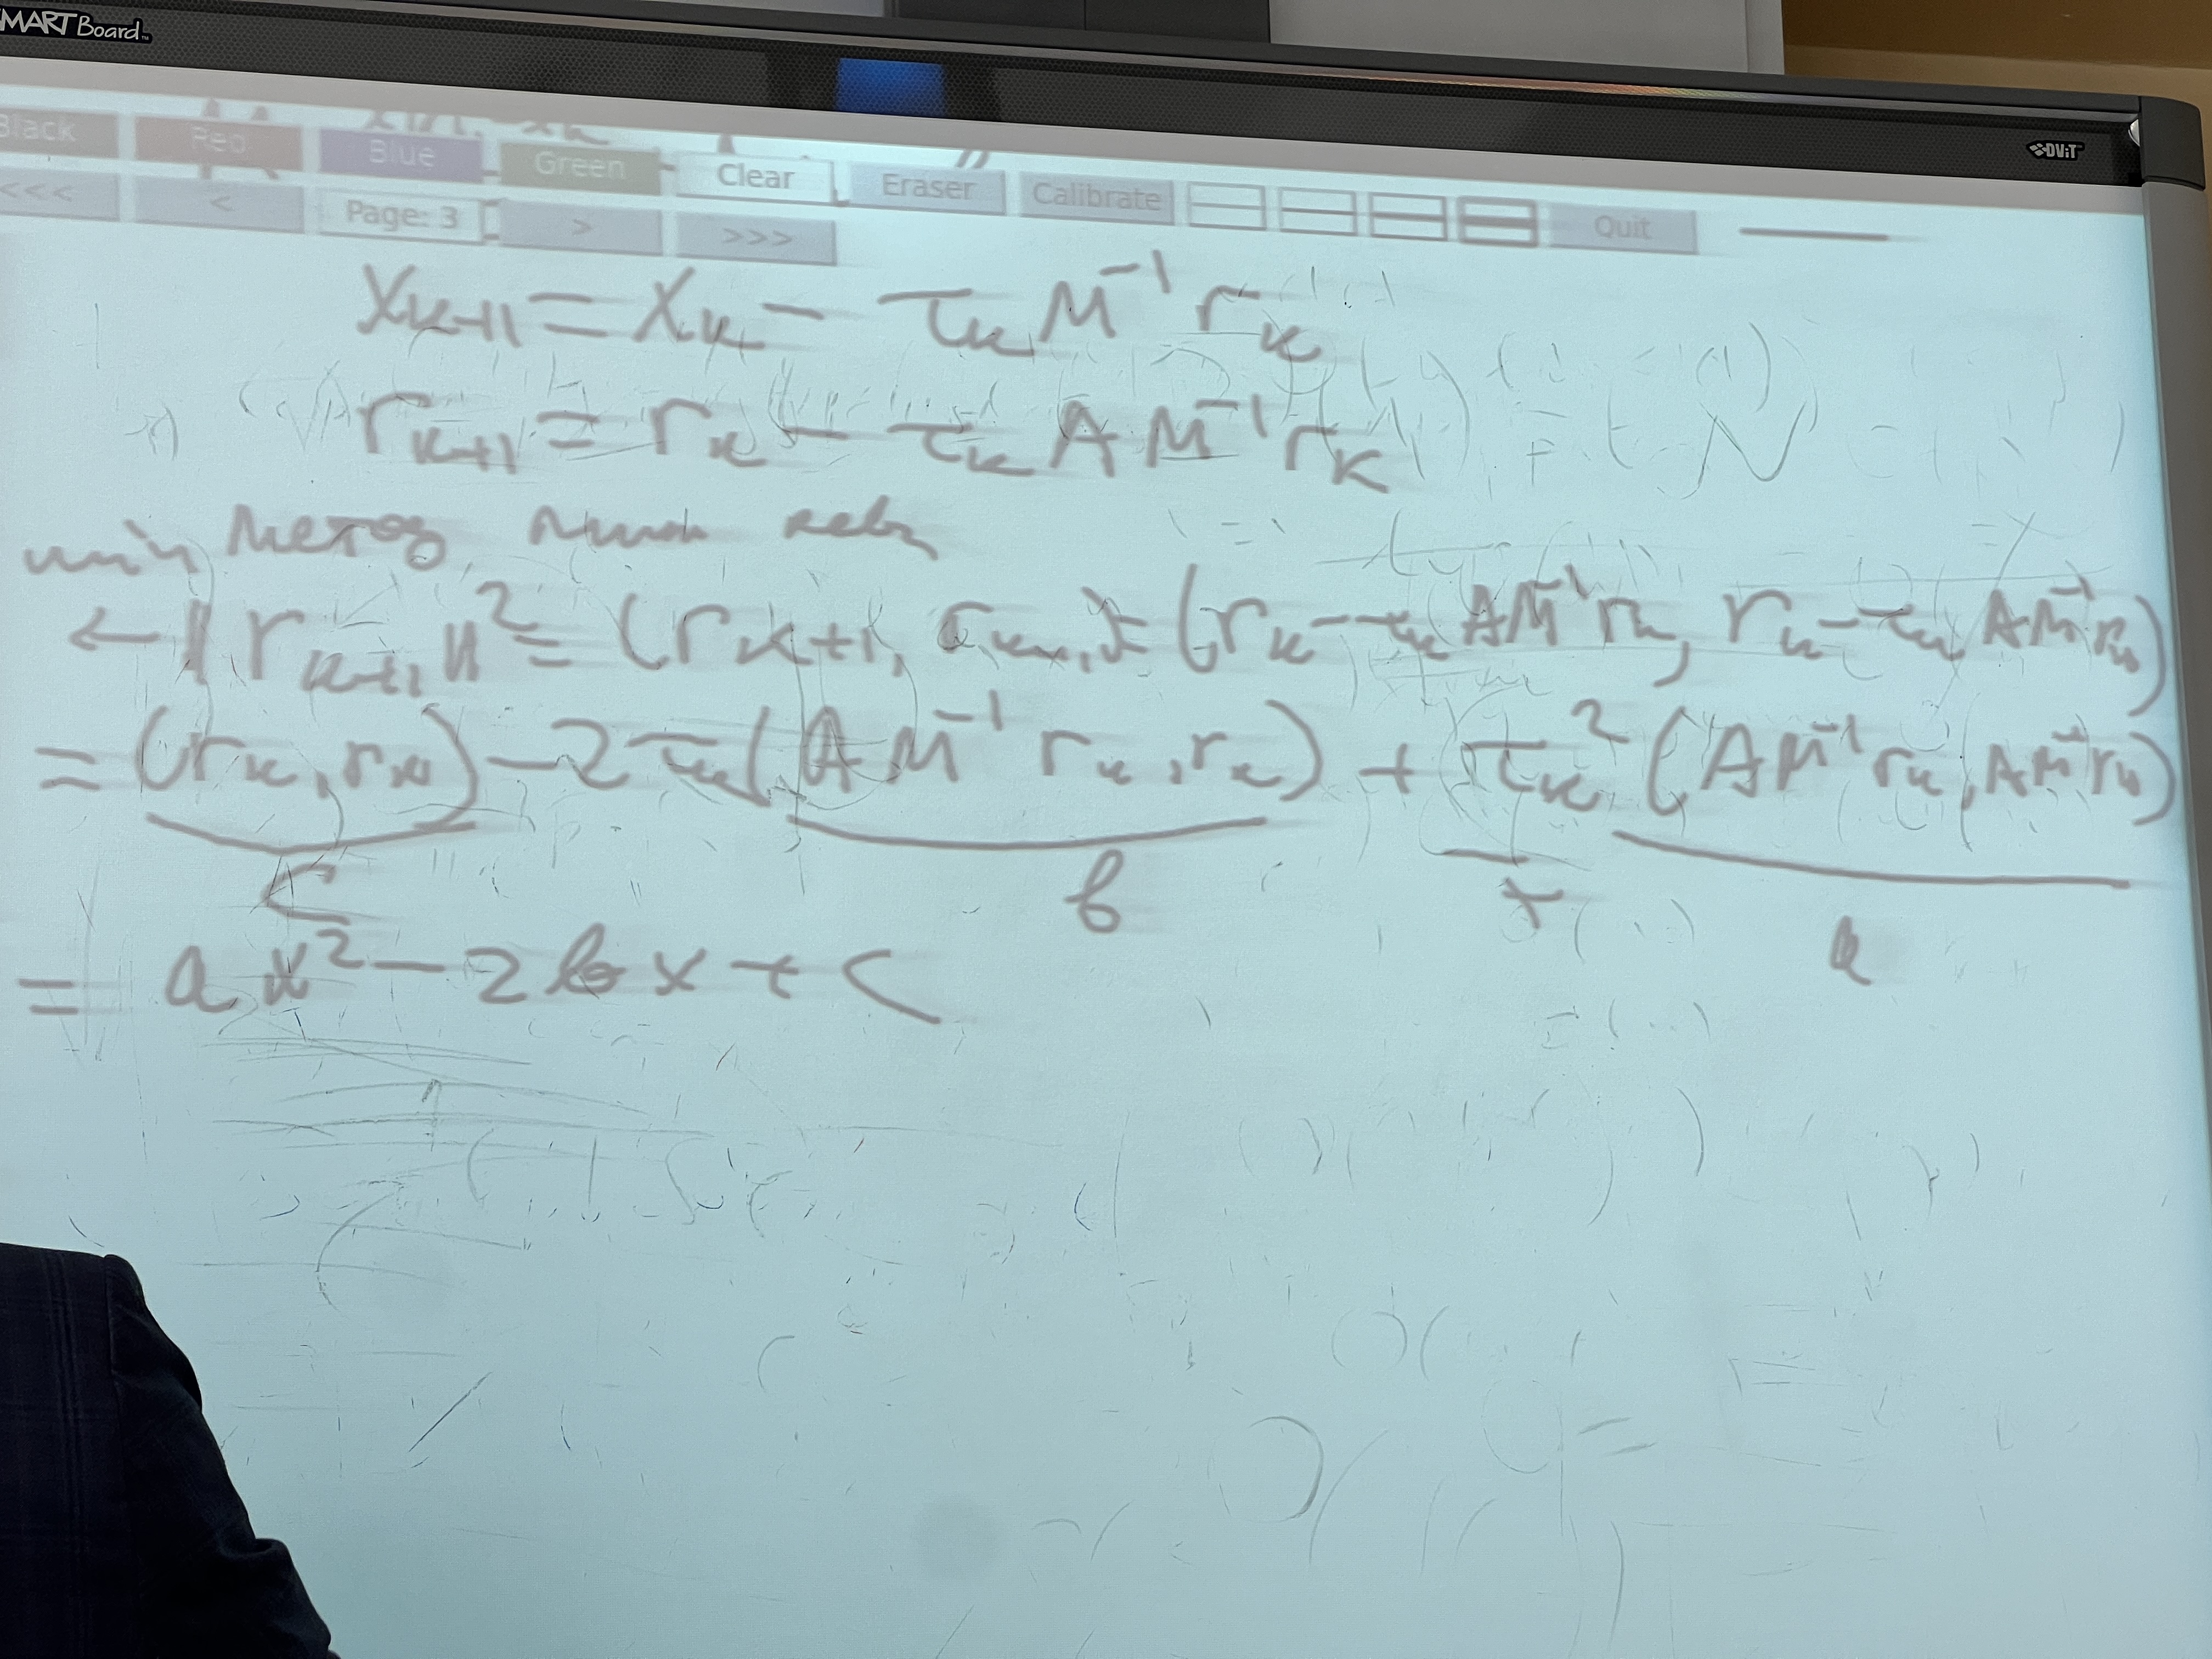 SMART Board™
DViT
Black Red Blue Green Clear Eraser Calibrate Quit
<<< < Page: 3 > >>>
xₖ₊₁ = xₖ − τₖ M⁻¹ rₖ
rₖ₊₁ = rₖ − τₖ A M⁻¹ rₖ
min метод мин невяз
← ‖rₖ₊₁‖² = (rₖ₊₁, rₖ₊₁) = (rₖ − τₖ AM⁻¹ rₖ, rₖ − τₖ AM⁻¹ rₖ)
= (rₖ, rₖ) − 2τₖ (AM⁻¹ rₖ, rₖ) + τₖ² (AM⁻¹ rₖ, AM⁻¹ rₖ)
c b x a
= a x² − 2 b x + c